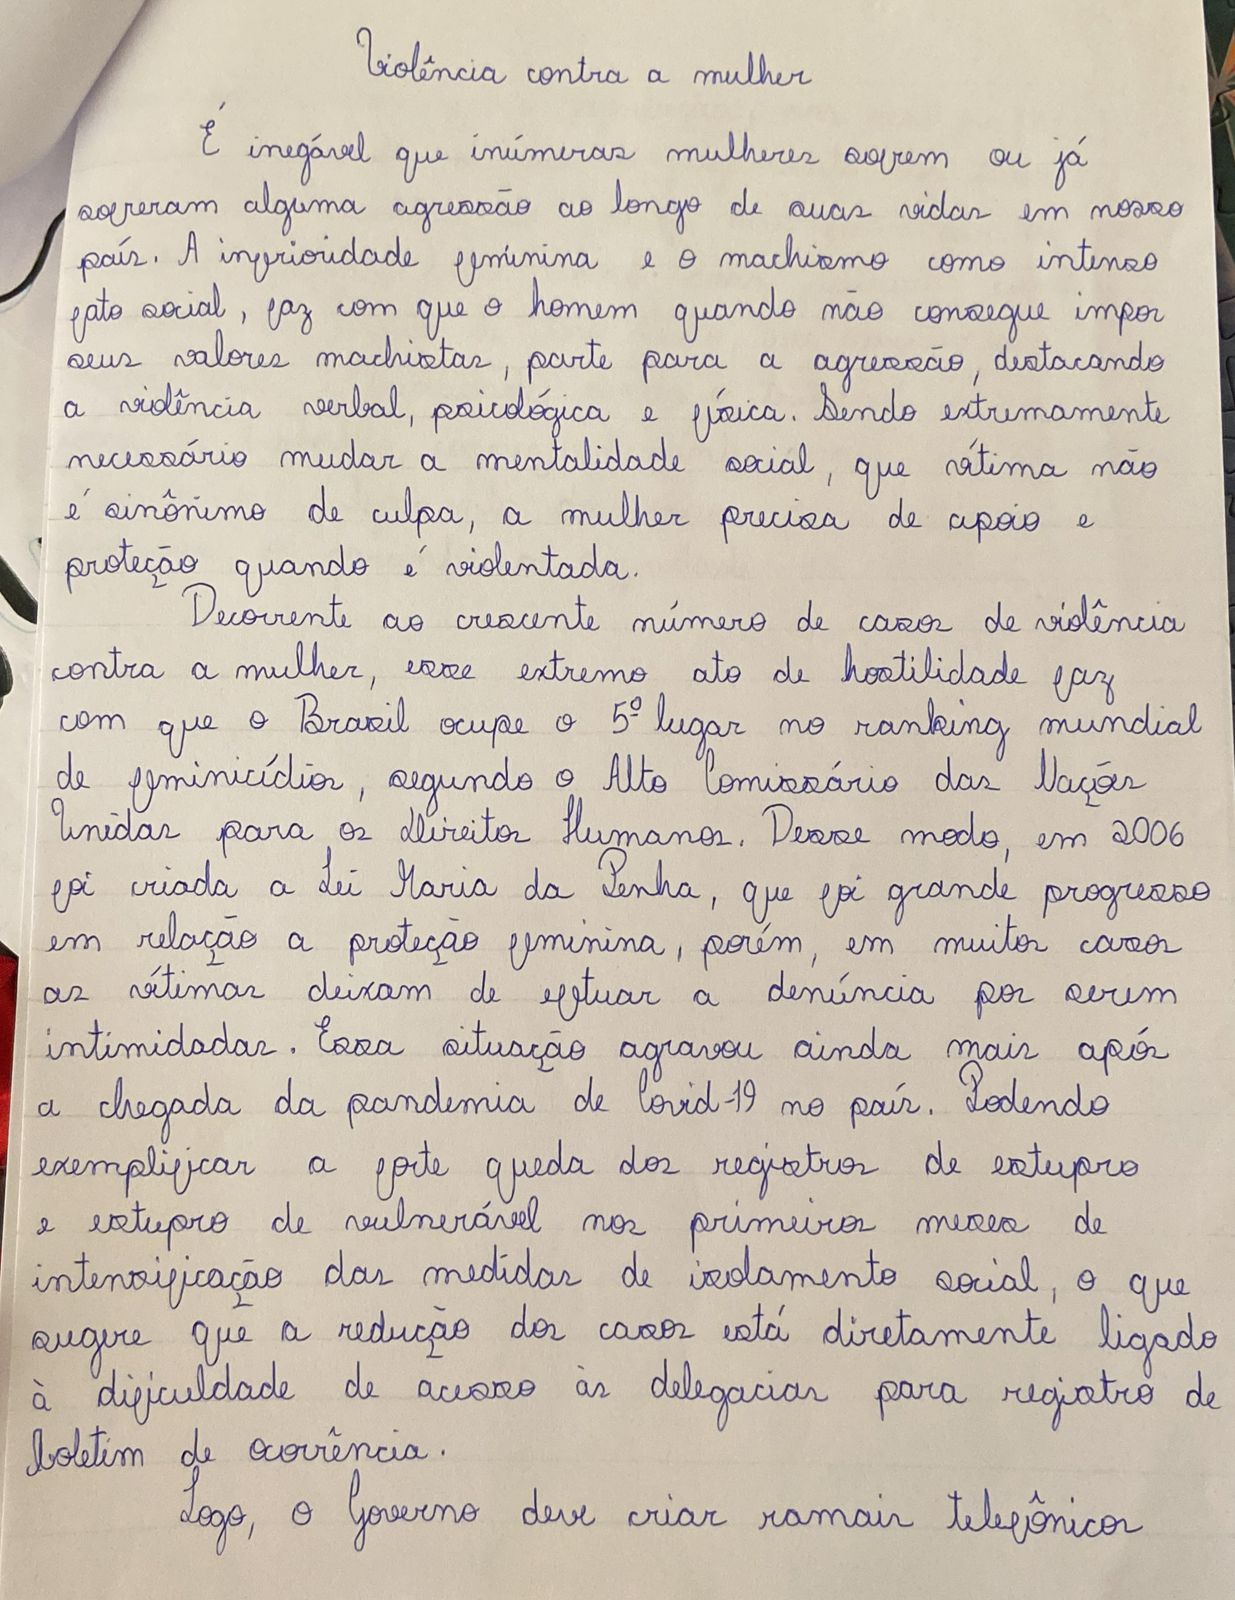 Violência contra a mulher
É inegável que inúmeras mulheres sofrem ou já
sofreram alguma agressão ao longo de suas vidas em nosso
país. A inferioridade feminina e o machismo como intenso
fato social, faz com que o homem quando não consegue impor
seus valores machistas, parte para a agressão, destacando
a violência verbal, psicológica e física. Sendo extremamente
necessário mudar a mentalidade social, que vítima não
é sinônimo de culpa, a mulher precisa de apoio e
proteção quando é violentada.
Decorrente ao crescente número de casos de violência
contra a mulher, esse extremo ato de hostilidade faz
com que o Brasil ocupe o 5º lugar no ranking mundial
de feminicídios, segundo o Alto Comissário das Nações
Unidas para os Direitos Humanos. Desse modo, em 2006
foi criada a Lei Maria da Penha, que foi grande progresso
em relação a proteção feminina, porém, em muitos casos
as vítimas deixam de efetuar a denúncia por serem
intimidadas. Essa situação agravou ainda mais após
a chegada da pandemia de Covid-19 no país. Podendo
exemplificar a forte queda dos registros de estupro
e estupro de vulnerável nos primeiros meses de
intensificação das medidas de isolamento social, o que
sugere que a redução dos casos está diretamente ligado
à dificuldade de acesso às delegacias para registro de
boletim de ocorrência.
Logo, o Governo deve criar ramais telefônicos